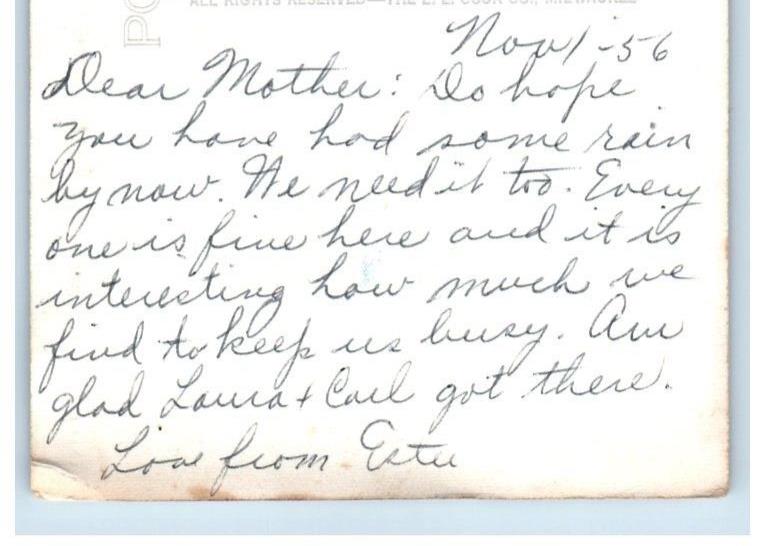 ALL RIGHTS RESERVED—THE L. L. COOK CO., MILWAUKEE
PO
Nov 1-56
Dear Mother: Do hope
you have had some rain
by now. We need it too. Every
one is fine here and it is
interesting how much we
find to keep us busy. Am
glad Laura + Carl got there.
Love from